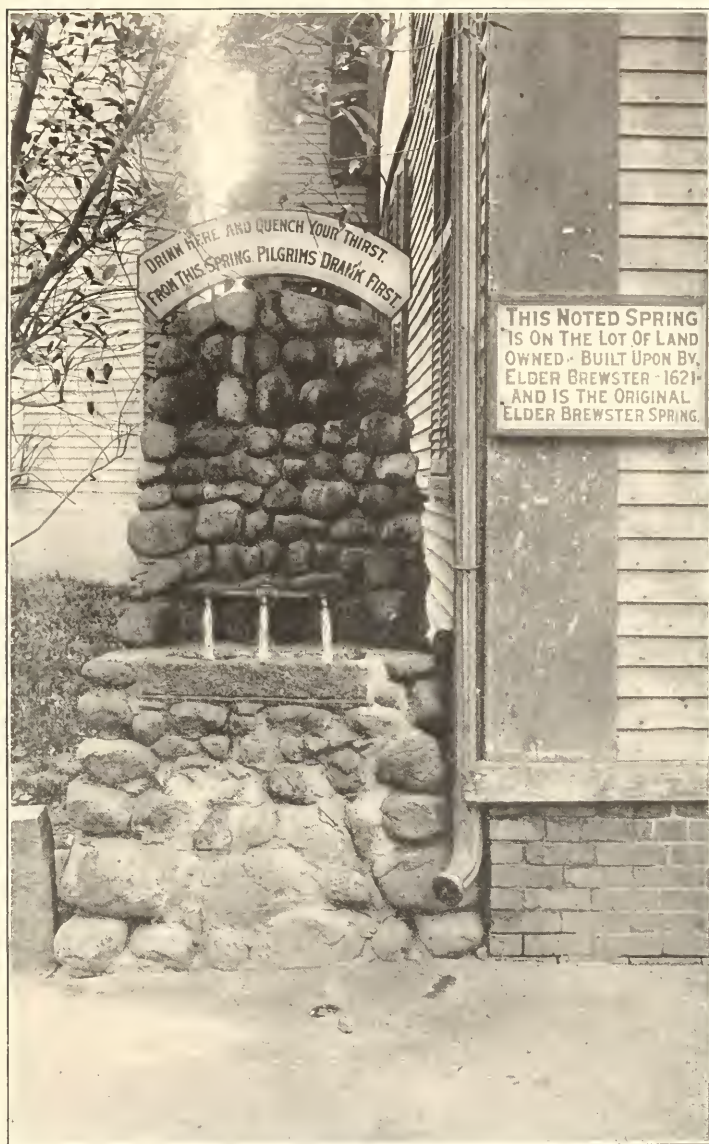 DRINK HERE AND QUENCH YOUR THIRST.
FROM THIS SPRING PILGRIMS DRANK FIRST
THIS NOTED SPRING
IS ON THE LOT OF LAND
OWNED - BUILT UPON BY,
ELDER BREWSTER - 1621 -
AND IS THE ORIGINAL
ELDER BREWSTER SPRING.